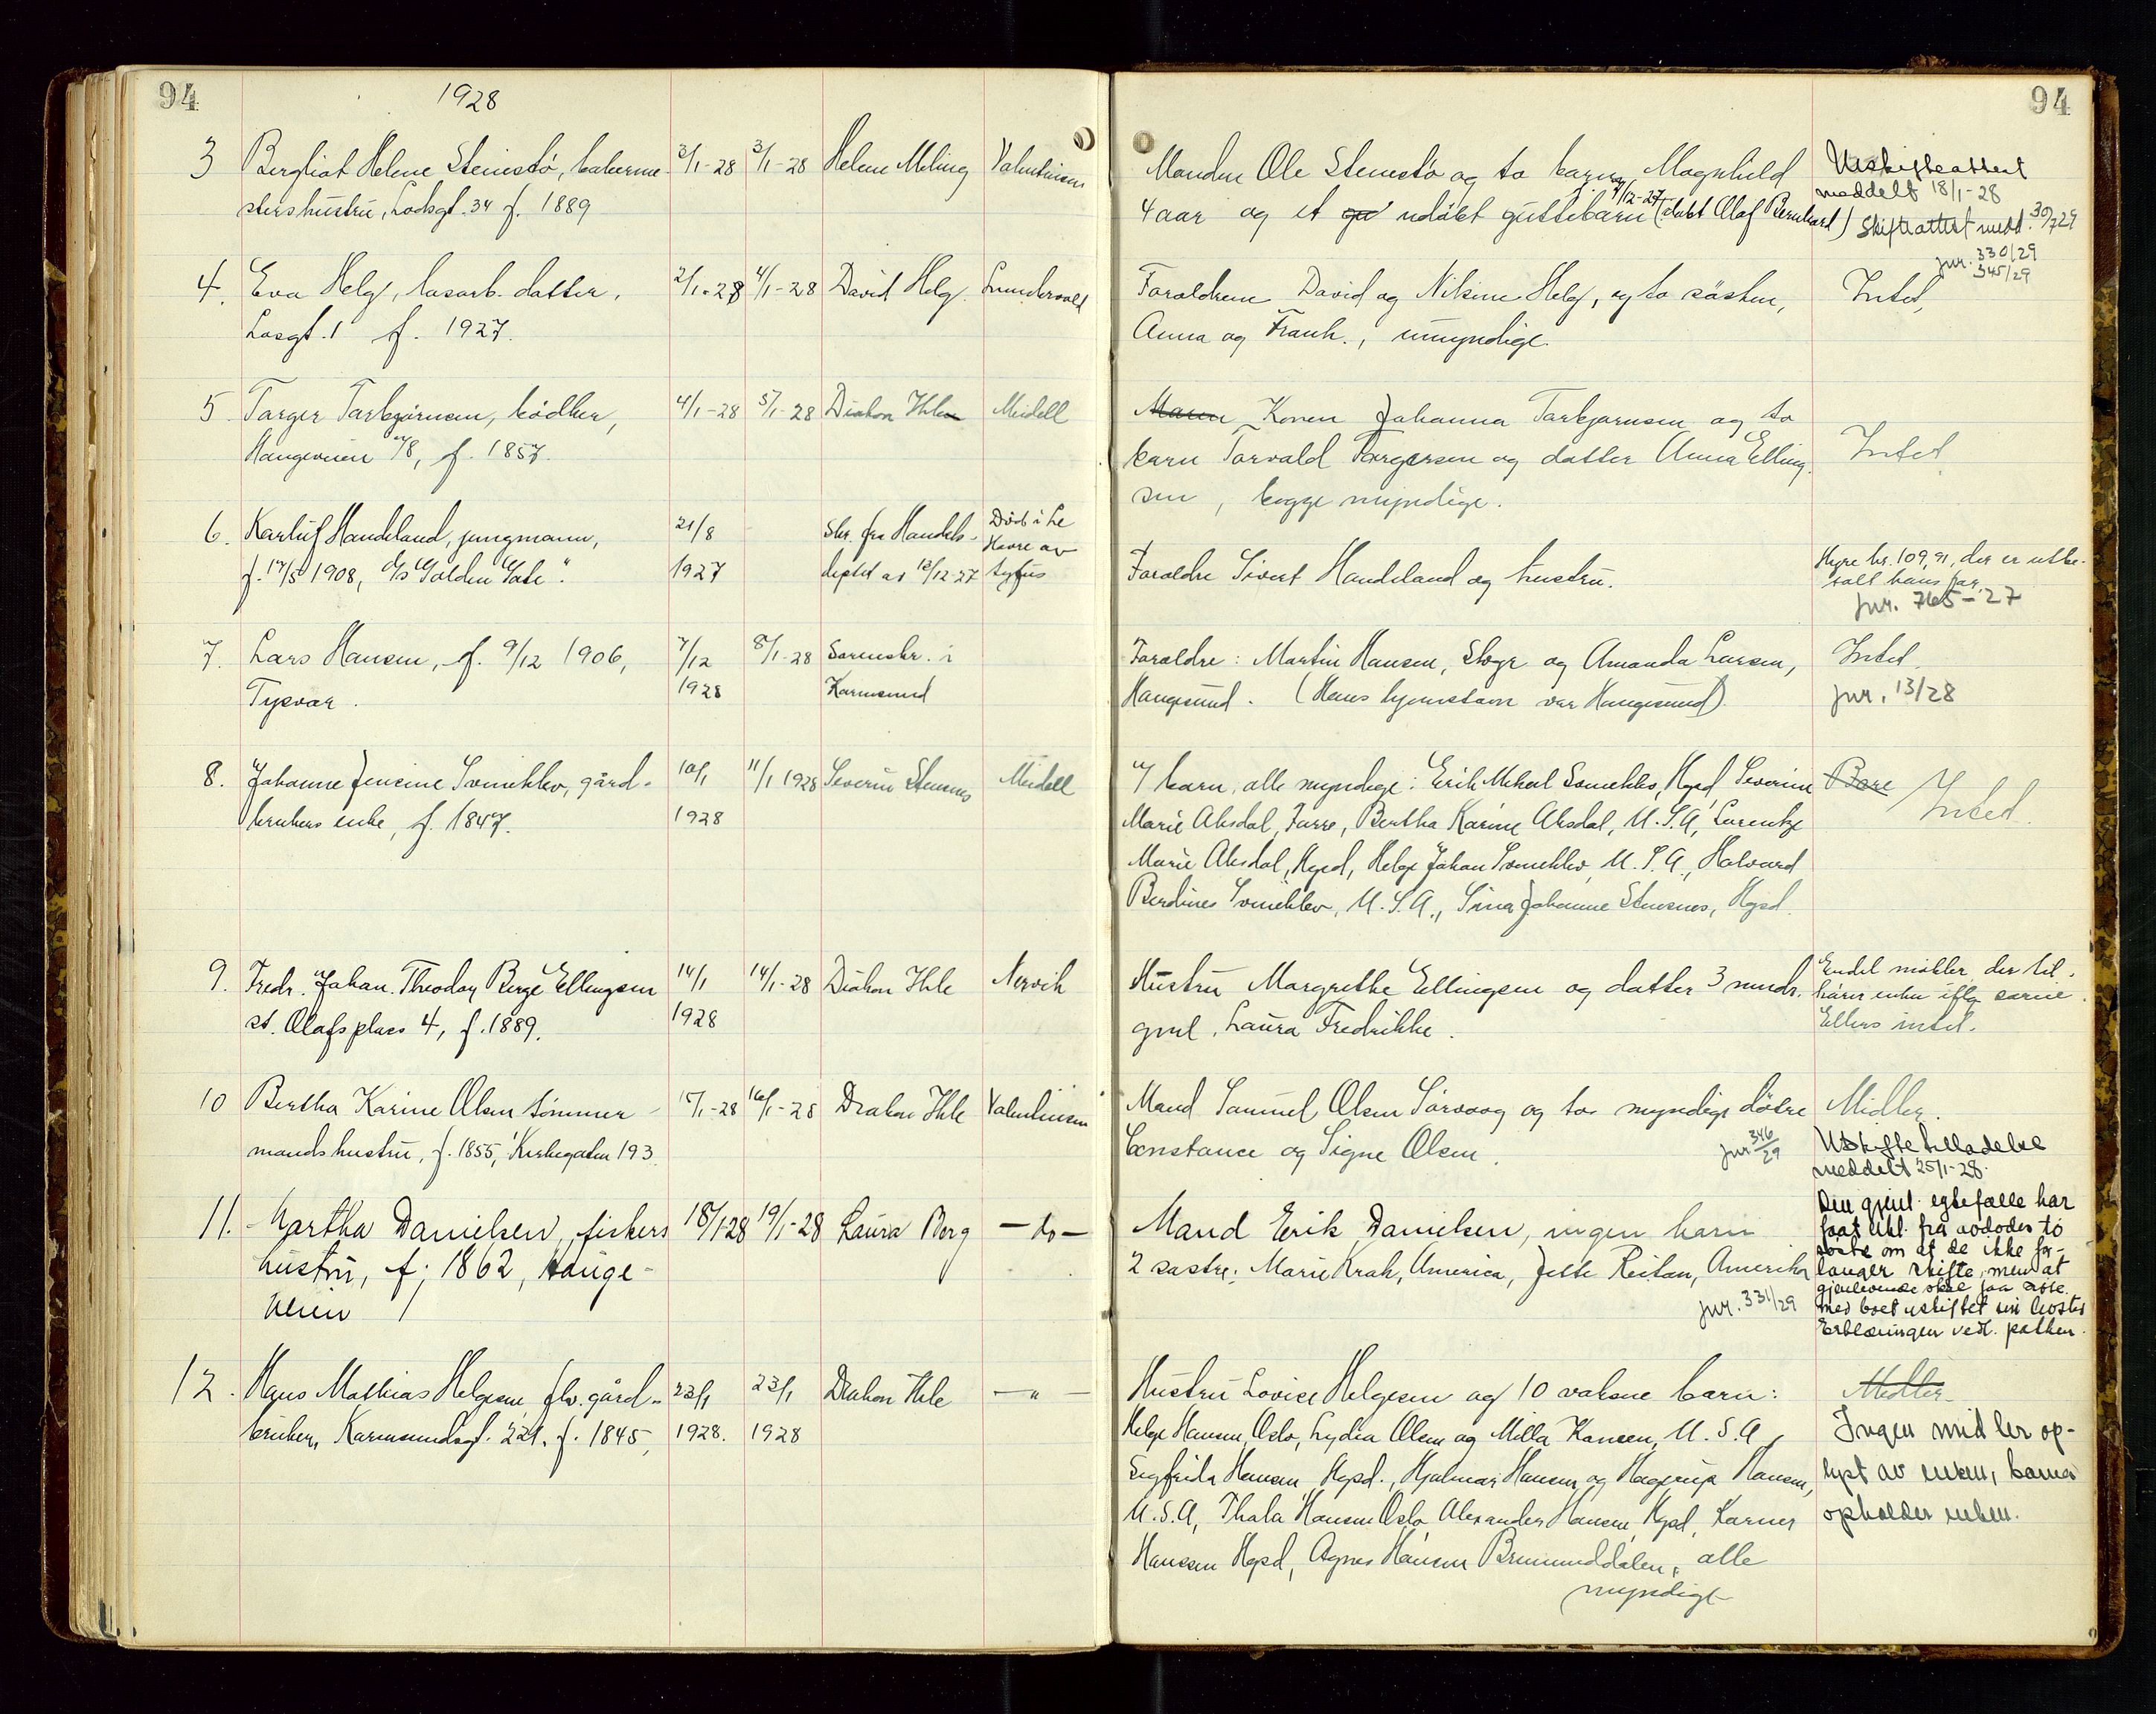 94
1928
94
3 Bergliot Helene Stensstø, bakerme- 3/1-28 3/1-28 Helene Meling Valentinsen
stershustru, Lodsgt. 34 f. 1889
Manden Ole Stensstø og to barn, Magnhild
4 aar og et udøbt guttebarn (døbt Olaf Bernhard)
Uskifteattest
meddelt 18/1-28
Skifteattest medd. 30/7 29
jnr. 330/29
345/29
4. Eva Helg, løsarb. datter, 2/1-28 4/1-28 David Helg
f. 1927.
Forældrene David og Nilsine Helg, og to søsken,
Anna og Frank, umyndige.
Intet,
5. Torger Torbjørnsen, bødker, 4/1-28 5/1-28 Diakon Ihle Meidell
f. 1857.
Konen Johanna Torbjørnsen og to
barn Torvald Torgersen og datter Anna Elling-
sen, begge myndige.
Intet
6. Karluf Handeland, jungmann, 21/8 Skr. fra Handels- Død i Le
Havre av
f. 17/5 1908, d/s "Golden Gate". 1927 deptet av 12/12-27 tyfus
Forældre Sivert Handeland og hustru.
Hyre kr. 109,91, der er utbe-
talt hans far.
jnr. 765-27
7. Lars Hansen, f. 9/12 1906, 7/12 8/1-28 Sorenskr. i
Tysvær. 1928 Karmsund
Forældre: Martin Hansen, og Amanda Larsen,
Haugesund. (Hans hjemstavn var Haugesund).
Intet.
jnr. 13/28
8. Johanne Jensine Svineklev, gård- 10/1 11/1 1928 Severin Stensnes Meidell
brukers enke, f. 1847. 1928
7 barn, alle myndige: Erik Mikael Svineklev, Hgsd, Severine
Marie Aksdal, Førre, Bertha Karine Aksdal, U.S.A, Lorentze
Marie Aksdal, Hgsd, Helge Johan Svineklev, U.S.A., Halvard
Berdines Svineklev, U.S.A., Sina Johanne Stensnes, Hgsd.
Intet.
9. Fredr. Johan Theodor Berge Ellingsen 14/1 14/1-28 Diakon Ihle Nervik
st. Olafsplass 4, f. 1889. 1928
Hustru Margrethe Ellingsen og datter 3 mndr.
gml. Laura Fredrikke.
Endel møbler, der til-
hører enken iflg
Ellers intet.
10 Bertha Karine Olsen tømmer- 15/1-28 16/1-28 Diakon Ihle Valentinsen
mands hustru, f. 1855, Kirkegaten 193
Mand Samuel Olsen Sørvaag og to myndige døtre
Constance og Signe Olsen.
jnr 346/29
Midler.
Uskiftetilladelse
meddelt 25/1-28.
11. Martha Danielsen, fiskers 18/1-28 19/1-28 Laura Berg — do —
hustru, f. 1862, Hauge-
veien 1
Mand Erik Danielsen, ingen barn
2 søstre: Marie Krak, America, Jette Reitan, Amerika
jnr. 331/29
Den gjenl. egtefælle har
faat erkl. fra avdødes to
søstre om at de ikke for-
langer skifte, men at
gjenlevende skal faa
med boet uskiftet sin levetid
Erklæringen vedl. pakken.
12. Hans Mathias Helgesen, fhv. gård- 23/1 23/1 Diakon Ihle — " —
bruker, Karmsundsgt. 221. f. 1845, 1928. 1928
Hustru Lovise Helgesen og 10 voksne barn:
Helge Hansen, Oslo, Lydia Olsen og Milla Hansen, U.S.A,
Sigfrida Hansen, Hgsd., Hjalmar Hansen og Hagerup Hansen,
U.S.A, Thala Hansen Oslo, Alexander Hansen, Hgsd, Karner
Hansen Hgsd, Agnes Hansen Brumunddalen, alle
myndige
Midler
Ingen midler op-
lyst av enken, barna
opholder enken.